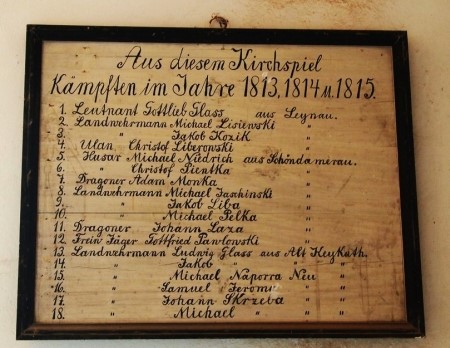 Aus diesem Kirchspiel
Kämpften im Jahre 1813, 1814 u. 1815.
1. Leutnant Gottlieb Glass aus Leynau.
2. Landwehrmann Michael Lisiewski "
3. " Jakob Kozik "
4. Ulan Christof Liberowski "
5. Husar Michael Niedrich aus Schöndamerau.
6. " Christof Pientka "
7. Dragoner Adam Monka "
8. Landwehrmann Michael Jaschinski "
9. " Jakob Liba "
10. " Michael Pelka "
11. Dragoner Johann Laza "
12. Freiw Jäger Gottfried Pawlowski "
13. Landwehrmann Ludwig Glass aus Alt Keykuth.
14. " Jakob " " "
15. " Michael Naporra Neu "
16. " Samuel Jeromin " "
17. " Johann Skrzeba " "
18. " Michael " " "